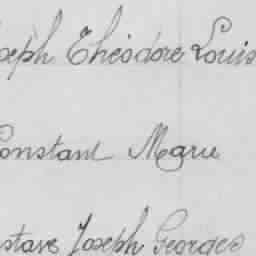 oseph Théodore Louis
Constant Marie
stave Joseph Georges